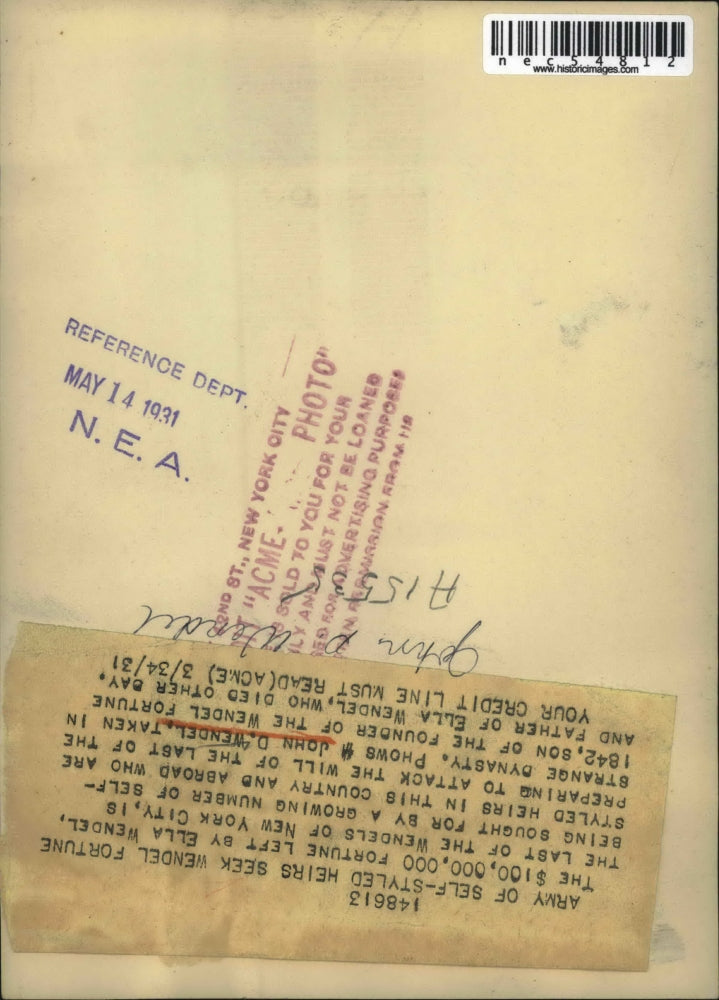 nec54812
www.historicimages.com
REFERENCE DEPT.
MAY 14 1931
N. E. A.
2ND ST., NEW YORK CITY
"ACME- PHOTO"
SOLD TO YOU FOR YOUR
LY AND MUST NOT BE LOANED
FOR ADVERTISING PURPOSES
FROM
John D Wendel
148613
ARMY OF SELF-STYLED HEIRS SEEK WENDEL FORTUNE
THE $100,000,000 FORTUNE LEFT BY ELLA WENDEL,
THE LAST OF THE WENDELS OF NEW YORK CITY, IS
BEING SOUGHT FOR BY A GROWING NUMBER OF SELF-
STYLED HEIRS IN THIS COUNTRY AND ABROAD WHO ARE
PREPARING TO ATTACK THE WILL OF THE LAST OF THE
STRANGE DYNASTY. PHOWS JOHN D. WENDEL, TAKEN IN
1842, SON OF THE FOUNDER OF THE WENDEL FORTUNE
AND FATHER OF ELLA WENDEL, WHO DIED OTHER DAY.
YOUR CREDIT LINE MUST READ(ACME) 3/24/31